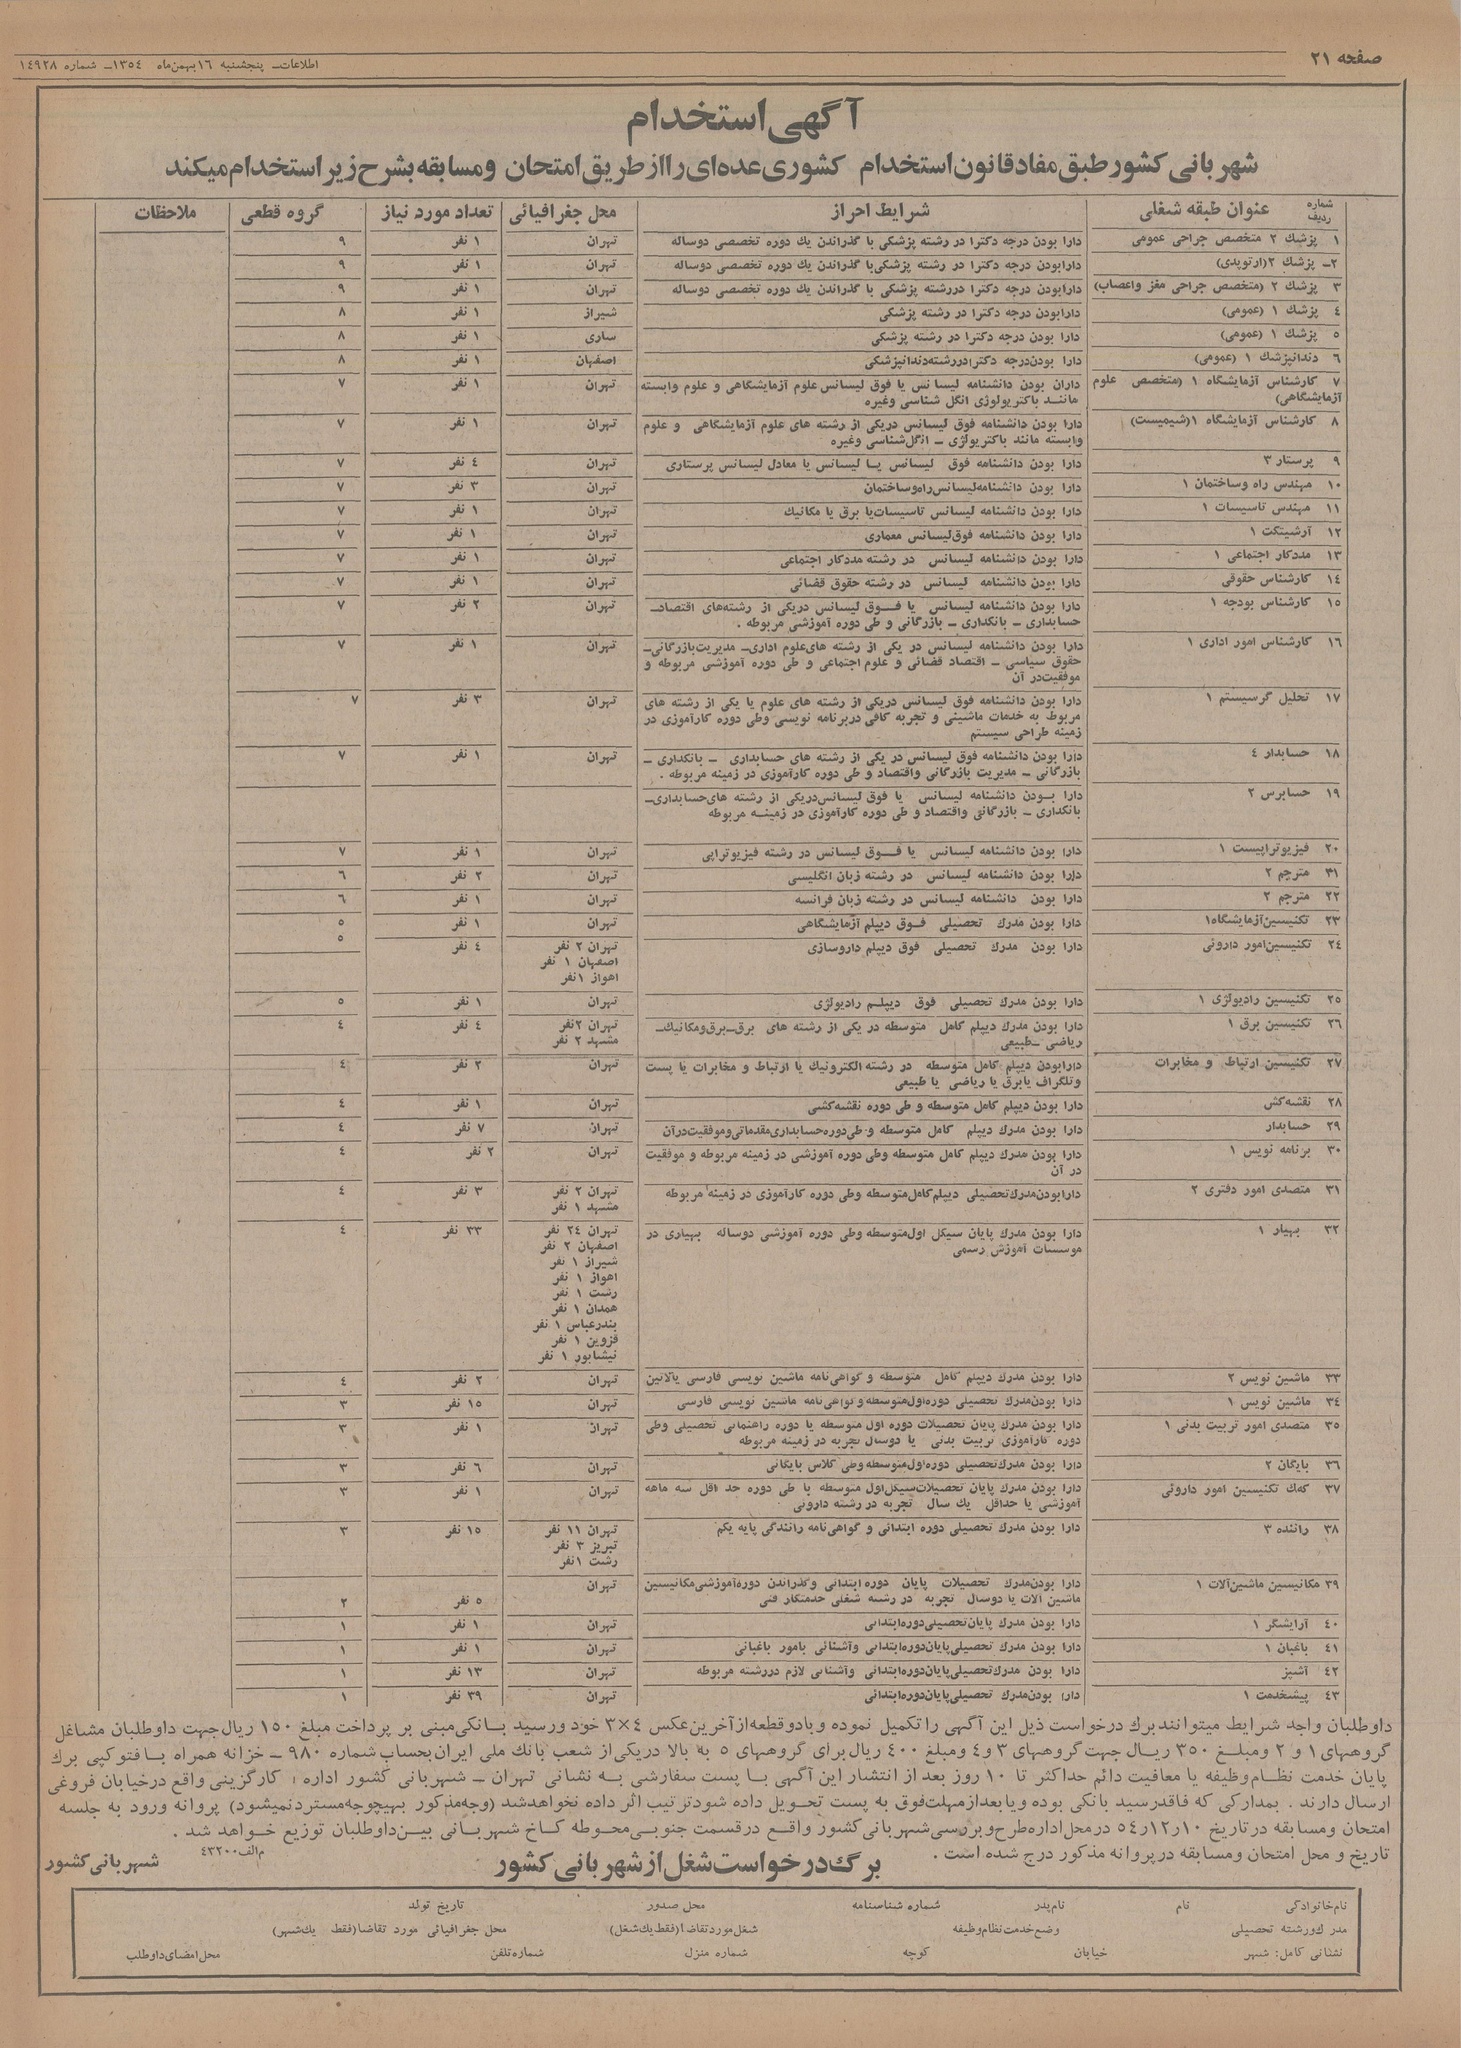 صفحه ۲۱
اطلاعات ـ پنجشنبه ۱۶ بهمن‌ماه ۱۳۵٤ ـ شماره ۱٤۹۲۸
آگهی استخدام
شهربانی کشور طبق مفاد قانون استخدام کشوری عده‌ای را از طریق امتحان و مسابقه بشرح زیر استخدام میکند
شماره ردیف عنوان طبقه شغلی شرایط احراز محل جغرافیائی تعداد مورد نیاز گروه قطعی ملاحظات
۱ پزشك ۲ متخصص جراحی عمومی دارا بودن درجه دکترا در رشته پزشکی با گذراندن یك دوره تخصصی دوساله تهران ۱ نفر ۹
۲ـ پزشك ۲(ارتوپدی) دارابودن درجه دکترا در رشته پزشکی با گذراندن یك دوره تخصصی دوساله تهران ۱ نفر ۹
۳ پزشك ۲ (متخصص جراحی مغز واعصاب) دارابودن درجه دکترا دررشته پزشکی با گذراندن یك دوره تخصصی دوساله تهران ۱ نفر ۹
٤ پزشك ۱ (عمومی) دارابودن درجه دکترا در رشته پزشکی شیراز ۱ نفر ۸
۵ پزشك ۱ (عمومی) دارا بودن درجه دکترا در رشته پزشکی ساری ۱ نفر ۸
۶ دندانپزشك ۱ (عمومی) دارا بودن‌درجه دکترادررشته‌دندانپزشکی اصفهان ۱ نفر ۸
۷ کارشناس آزمایشگاه ۱ (متخصص علوم داران بودن دانشنامه لیسانس یا فوق لیسانس علوم آزمایشگاهی و علوم وابسته تهران ۱ نفر ۷
آزمایشگاهی) مانند باکتریولوژی انگل شناسی وغیره
۸ کارشناس آزمایشگاه ۱(شیمیست) دارا بودن دانشنامه فوق لیسانس دریکی از رشته های علوم آزمایشگاهی و علوم تهران ۱ نفر ۷
وابسته مانند باکتریولژی ـ انگل‌شناسی وغیره
۹ پرستار ۳ دارا بودن دانشنامه فوق لیسانس یا لیسانس یا معادل لیسانس پرستاری تهران ٤ نفر ۷
۱۰ مهندس راه وساختمان ۱ دارا بودن دانشنامه‌لیسانس‌راه‌وساختمان تهران ۳ نفر ۷
۱۱ مهندس تاسیسات ۱ دارا بودن دانشنامه لیسانس تاسیسات‌یا برق یا مکانیك تهران ۱ نفر ۷
۱۲ آرشیتکت ۱ دارا بودن دانشنامه فوق‌لیسانس معماری تهران ۱ نفر ۷
۱۳ مددکار اجتماعی ۱ دارا بودن دانشنامه لیسانس در رشته مددکار اجتماعی تهران ۱ نفر ۷
۱٤ کارشناس حقوقی دارا بودن دانشنامه لیسانس در رشته حقوق قضائی تهران ۱ نفر ۷
۱۵ کارشناس بودجه ۱ دارا بودن دانشنامه لیسانس یا فوق لیسانس دریکی از رشته‌های اقتصاد ـ تهران ۲ نفر ۷
حسابداری ـ بانکداری ـ بازرگانی و طی دوره آموزشی مربوطه .
۱۶ کارشناس امور اداری ۱ دارا بودن دانشنامه لیسانس در یکی از رشته های‌علوم اداری ـ مدیریت‌بازرگانی ـ تهران ۱ نفر ۷
حقوق سیاسی ـ اقتصاد قضائی و علوم اجتماعی و طی دوره آموزشی مربوطه و
موفقیت‌در آن
۱۷ تحلیل گرسیستم ۱ دارا بودن دانشنامه فوق لیسانس دریکی از رشته های علوم یا یکی از رشته های تهران ۳ نفر ۷
مربوط به خدمات ماشینی و تجربه کافی دربرنامه نویسی وطی دوره کارآموزی در
زمینه طراحی سیستم
۱۸ حسابدار ٤ دارا بودن دانشنامه فوق لیسانس در یکی از رشته های حسابداری ـ بانکداری ـ تهران ۱ نفر ۷
بازرگانی ـ مدیریت بازرگانی واقتصاد و طی دوره کارآموزی در زمینه مربوطه .
۱۹ حسابرس ۲ دارا بودن دانشنامه لیسانس یا فوق لیسانس‌دریکی از رشته های‌حسابداری ـ
بانکداری ـ بازرگانی واقتصاد و طی دوره کارآموزی در زمینه مربوطه
۲۰ فیزیوتراپیست ۱ دارا بودن دانشنامه لیسانس یا فوق لیسانس در رشته فیزیوتراپی تهران ۱ نفر ۷
۳۱ مترجم ۲ دارا بودن دانشنامه لیسانس در رشته زبان انگلیسی تهران ۲ نفر ۶
۲۲ مترجم ۲ دارا بودن دانشنامه لیسانس در رشته زبان فرانسه تهران ۱ نفر ۶
۲۳ تکنیسین‌آزمایشگاه‌۱ دارا بودن مدرك تحصیلی فوق دیپلم آزمایشگاهی تهران ۱ نفر ۵
۲٤ تکنیسین‌امور داروئی دارا بودن مدرك تحصیلی فوق دیپلم داروسازی تهران ۲ نفر ٤ نفر ۵
اصفهان ۱ نفر
اهواز ۱نفر
۲۵ تکنیسین رادیولژی ۱ دارا بودن مدرك تحصیلی فوق دیپلم رادیولژی تهران ۱ نفر ۵
۲۶ تکنیسین برق ۱ دارا بودن مدرك دیپلم کامل متوسطه در یکی از رشته های برق ـ برق‌ومکانیك ـ تهران ۲نفر ٤ نفر ٤
ریاضی ـ طبیعی مشهد ۲ نفر
۲۷ تکنیسین ارتباط و مخابرات دارابودن دیپلم کامل متوسطه در رشته الکترونیك یا ارتباط و مخابرات یا پست تهران ۲ نفر ٤
وتلگراف یابرق یا ریاضی یا طبیعی
۲۸ نقشه‌کش دارا بودن دیپلم کامل متوسطه و طی دوره نقشه‌کشی تهران ۱ نفر ٤
۲۹ حسابدار دارا بودن مدرك دیپلم کامل متوسطه و طی‌دوره‌حسابداری‌مقدماتی‌وموفقیت‌درآن تهران ۷ نفر ٤
۳۰ برنامه نویس ۱ دارا بودن مدرك دیپلم کامل متوسطه وطی دوره آموزشی در زمینه مربوطه و موفقیت تهران ۲ نفر ٤
در آن
۳۱ متصدی امور دفتری ۲ دارابودن‌مدرك‌تحصیلی دیپلم‌کامل‌متوسطه وطی دوره کارآموزی در زمینه مربوطه تهران ۲ نفر ۳ نفر ٤
مشهد ۱ نفر
۳۲ بهیار ۱ دارا بودن مدرك پایان سیکل اول‌متوسطه وطی دوره آموزشی دوساله بهیاری در تهران ۲٤ نفر ۳۳ نفر ٤
موسسات آموزش رسمی اصفهان ۲ نفر
شیراز ۱ نفر
اهواز ۱ نفر
رشت ۱ نفر
همدان ۱ نفر
بندرعباس ۱ نفر
قزوین ۱ نفر
نیشابور ۱ نفر
۳۳ ماشین نویس ۲ دارا بودن مدرك دیپلم کامل متوسطه و گواهی‌نامه ماشین نویسی فارسی یالاتین تهران ۲ نفر ٤
۳٤ ماشین نویس ۱ دارا بودن‌مدرك تحصیلی دوره‌اول‌متوسطه‌وگواهی‌نامه ماشین نویسی فارسی تهران ۱۵ نفر ۳
۳۵ متصدی امور تربیت بدنی ۱ دارا بودن مدرك پایان تحصیلات دوره اول متوسطه یا دوره راهنمائی تحصیلی وطی تهران ۱ نفر ۳
دوره کارآموزی تربیت بدنی یا دوسال تجربه در زمینه مربوطه
۳۶ بایگان ۲ دارا بودن مدرك‌تحصیلی دوره‌اول‌متوسطه وطی کلاس بایگانی تهران ۶ نفر ۳
۳۷ کمك تکنیسین امور داروئی دارا بودن مدرك پایان تحصیلات‌سیکل‌اول متوسطه با طی دوره حد اقل سه ماهه تهران ۱ نفر ۳
آموزشی یا حداقل یك سال تجربه در رشته داروئی
۳۸ راننده ۳ دارا بودن مدرك تحصیلی دوره ابتدائی و گواهی‌نامه رانندگی پایه یکم تهران ۱۱ نفر ۱۵ نفر ۳
تبریز ۳ نفر
رشت ۱نفر
۳۹ مکانیسین ماشین‌آلات ۱ دارا بودن‌مدرك تحصیلات پایان دوره ابتدائی وگذراندن دوره‌آموزشی‌مکانیسین تهران
ماشین آلات یا دوسال تجربه در رشته شغلی خدمتگار فنی ۵ نفر ۲
٤۰ آرایشگر ۱ دارا بودن مدرك پایان‌تحصیلی‌دوره‌ابتدائی تهران ۱ نفر ۱
٤۱ باغبان ۱ دارا بودن مدرك تحصیلی‌پایان‌دوره‌ابتدائی وآشنائی بامور باغبانی تهران ۱ نفر ۱
٤۲ آشپز دارا بودن مدرك‌تحصیلی‌پایان‌دوره‌ابتدائی وآشنایی لازم دررشته مربوطه تهران ۱۳ نفر ۱
٤۳ پیشخدمت ۱ دارا بودن‌مدرك تحصیلی‌پایان‌دوره‌ابتدائی تهران ۳۹ نفر ۱
داوطلبان واجد شرایط میتوانند برك درخواست ذیل این آگهی را تکمیل نموده و بادوقطعه از آخرین عکس ٤×۳ خود ورسید بانکی مبنی بر پرداخت مبلغ ۱۵۰ ریال جهت داوطلبان مشاغل
گروههای ۱ و ۲ ومبلغ ۳۵۰ ریال جهت گروههای ۳ و٤ ومبلغ ٤۰۰ ریال برای گروههای ۵ به بالا دریکی از شعب بانك ملی ایران بحساب شماره ۹۸۰ ـ خزانه همراه بافتوکپی برك
پایان خدمت نظام وظیفه یا معافیت دائم حداکثر تا ۱۰ روز بعد از انتشار این آگهی با پست سفارشی به نشانی تهران ـ شهربانی کشور اداره کارگزینی واقع درخیابان فروغی
ارسال دارند . بمدارکی که فاقد رسید بانکی بوده ویا بعد از مهلت فوق به پست تحویل داده شود ترتیب اثر داده نخواهد شد (وجه مذکور بهیچوجه مسترد نمیشود) پروانه ورود به جلسه
امتحان ومسابقه در تاریخ ۱۰ر۱۲ر۵٤ در محل اداره طرح وبررسی شهربانی کشور واقع درقسمت جنوبی محوطه کاخ شهربانی بین داوطلبان توزیع خواهد شد .
تاریخ و محل امتحان ومسابقه در پروانه مذکور درج شده است .
م‌الف ٤۳۲۰۰
شهربانی کشور
برگ درخواست شغل از شهربانی کشور
نام‌خانوادگی نام نام‌پدر شماره شناسنامه محل صدور تاریخ تولد
مدرك‌ورشته تحصیلی وضع‌خدمت‌نظام‌وظیفه شغل‌موردتقاضا(فقط‌یك‌شغل) محل جغرافیائی مورد تقاضا(فقط یك‌شهر)
نشانی کامل: شهر خیابان کوچه شماره منزل شماره‌تلفن محل‌امضای‌داوطلب